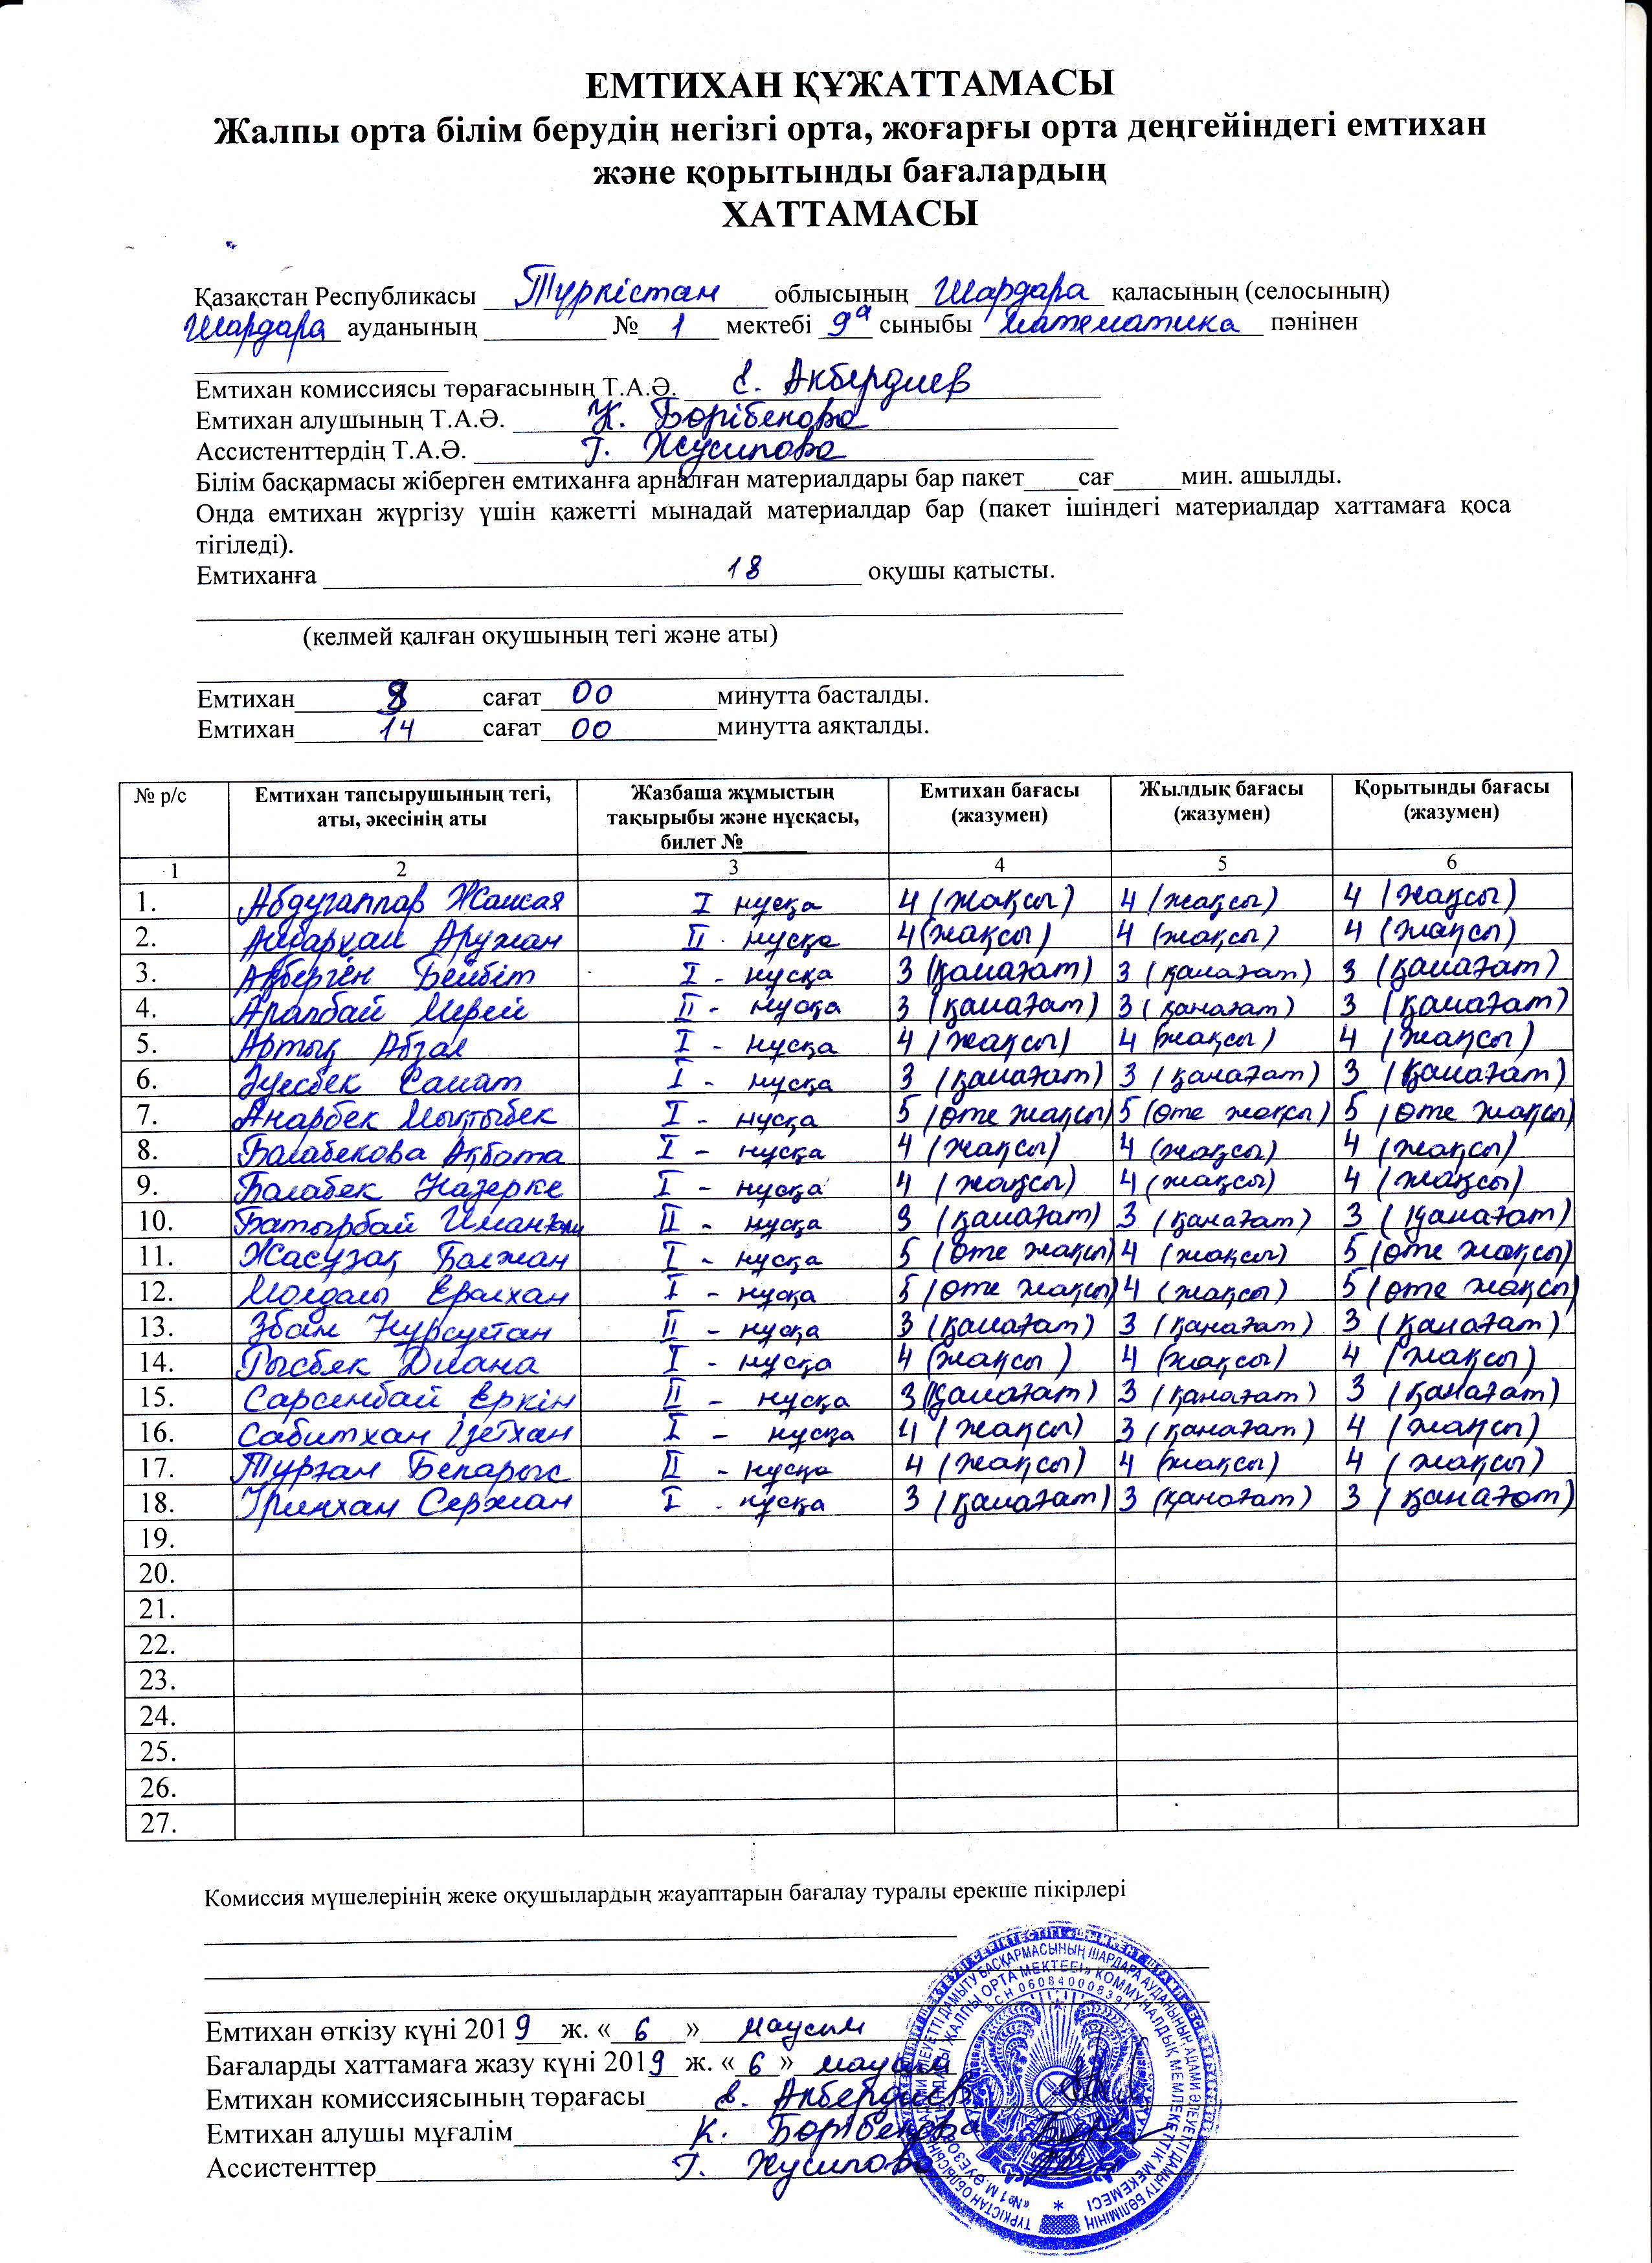 ЕМТИХАН ҚҰЖАТТАМАСЫ
Жалпы орта білім берудің негізгі орта, жоғарғы орта деңгейіндегі емтихан
және қорытынды бағалардың
ХАТТАМАСЫ
Қазақстан Республикасы Түркістан облысының Шардара қаласының (селосының)
Шардара ауданының № 1 мектебі 9а сыныбы математика пәнінен
Емтихан комиссиясы төрағасының Т.А.Ә. Е. Акбердиев
Емтихан алушының Т.А.Ә. К. Бөрібекова
Ассистенттердің Т.А.Ә. Г. Жусипова
Білім басқармасы жіберген емтиханға арналған материалдары бар пакет____сағ_____мин. ашылды.
Онда емтихан жүргізу үшін қажетті мынадай материалдар бар (пакет ішіндегі материалдар хаттамаға қоса
тігіледі).
Емтиханға 18 оқушы қатысты.
(келмей қалған оқушының тегі және аты)
Емтихан 8 сағат 00 минутта басталды.
Емтихан 14 сағат 00 минутта аяқталды.
№ р/с Емтихан тапсырушының тегі, аты, әкесінің аты Жазбаша жұмыстың тақырыбы және нұсқасы, билет №_____ Емтихан бағасы (жазумен) Жылдық бағасы (жазумен) Қорытынды бағасы (жазумен)
1 2 3 4 5 6
1. Абдугаппар I нұсқа 4 (жақсы) 4 (жақсы) 4 (жақсы)
2. Аружан II нұсқа 4 (жақсы) 4 (жақсы) 4 (жақсы)
3. Ақберген Бейбіт I - нұсқа 3 (қанағат) 3 (қанағат) 3 (қанағат)
4. Арапбай Мерей II - нұсқа 3 (қанағат) 3 (қанағат) 3 (қанағат)
5. Артық Абзал I - нұсқа 4 (жақсы) 4 (жақсы) 4 (жақсы)
6. Әуесбек Санат I - нұсқа 3 (қанағат) 3 (қанағат) 3 (қанағат)
7. Анарбек Мықтыбек I - нұсқа 5 (өте жақсы) 5 (өте жақсы) 5 (өте жақсы)
8. Балабекова Ақбота I - нұсқа 4 (жақсы) 4 (жақсы) 4 (жақсы)
9. Балабек Назерке I - нұсқа 4 (жақсы) 4 (жақсы) 4 (жақсы)
10. Батырбай Иманғали II - нұсқа 3 (қанағат) 3 (қанағат) 3 (қанағат)
11. Жасұзақ Балжан I - нұсқа 5 (өте жақсы) 4 (жақсы) 5 (өте жақсы)
12. Молдалы Ералхан I - нұсқа 5 (өте жақсы) 4 (жақсы) 5 (өте жақсы)
13. Нұрсұлтан II - нұсқа 3 (қанағат) 3 (қанағат) 3 (қанағат)
14. Рысбек Диана I - нұсқа 4 (жақсы) 4 (жақсы) 4 (жақсы)
15. Сарсенбай Еркін II - нұсқа 3 (қанағат) 3 (қанағат) 3 (қанағат)
16. Сабитхан Ізетхан I - нұсқа 4 (жақсы) 3 (қанағат) 4 (жақсы)
17. Турған Бекарыс II - нұсқа 4 (жақсы) 4 (жақсы) 4 (жақсы)
18. Сержан I - нұсқа 3 (қанағат) 3 (қанағат) 3 (қанағат)
19.
20.
21.
22.
23.
24.
25.
26.
27.
Комиссия мүшелерінің жеке оқушылардың жауаптарын бағалау туралы ерекше пікірлері
Емтихан өткізу күні 2019 ж. « 6 » маусым
Бағаларды хаттамаға жазу күні 2019 ж. « 6 » маусым
Емтихан комиссиясының төрағасы Е. Акбердиев
Емтихан алушы мұғалім К. Бөрібекова
Ассистенттер Г. Жусипова